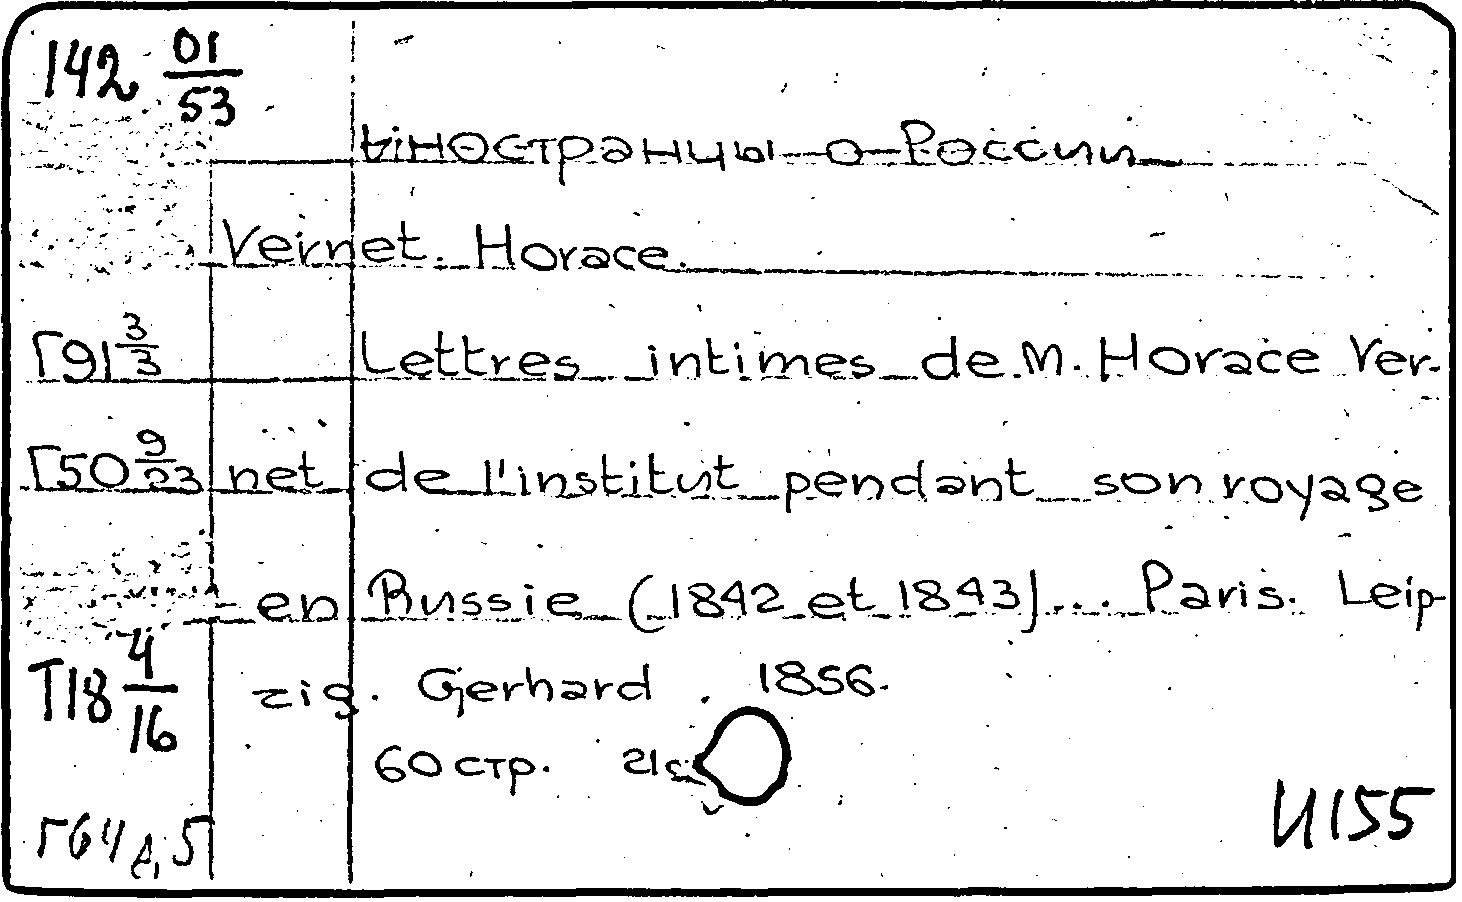 142 01/53
Иностранцы о России
Vernet. Horace.
Г91 3/3 Lettres intimes de M. Horace Ver-
Г50 9/23 net de l'institut pendant son voyage
en Russie (1842 et 1843)... Paris. Leip-
Т18 4/16 zig. Gerhard. 1856.
60 стр. 21с
Г64 д,5 И155